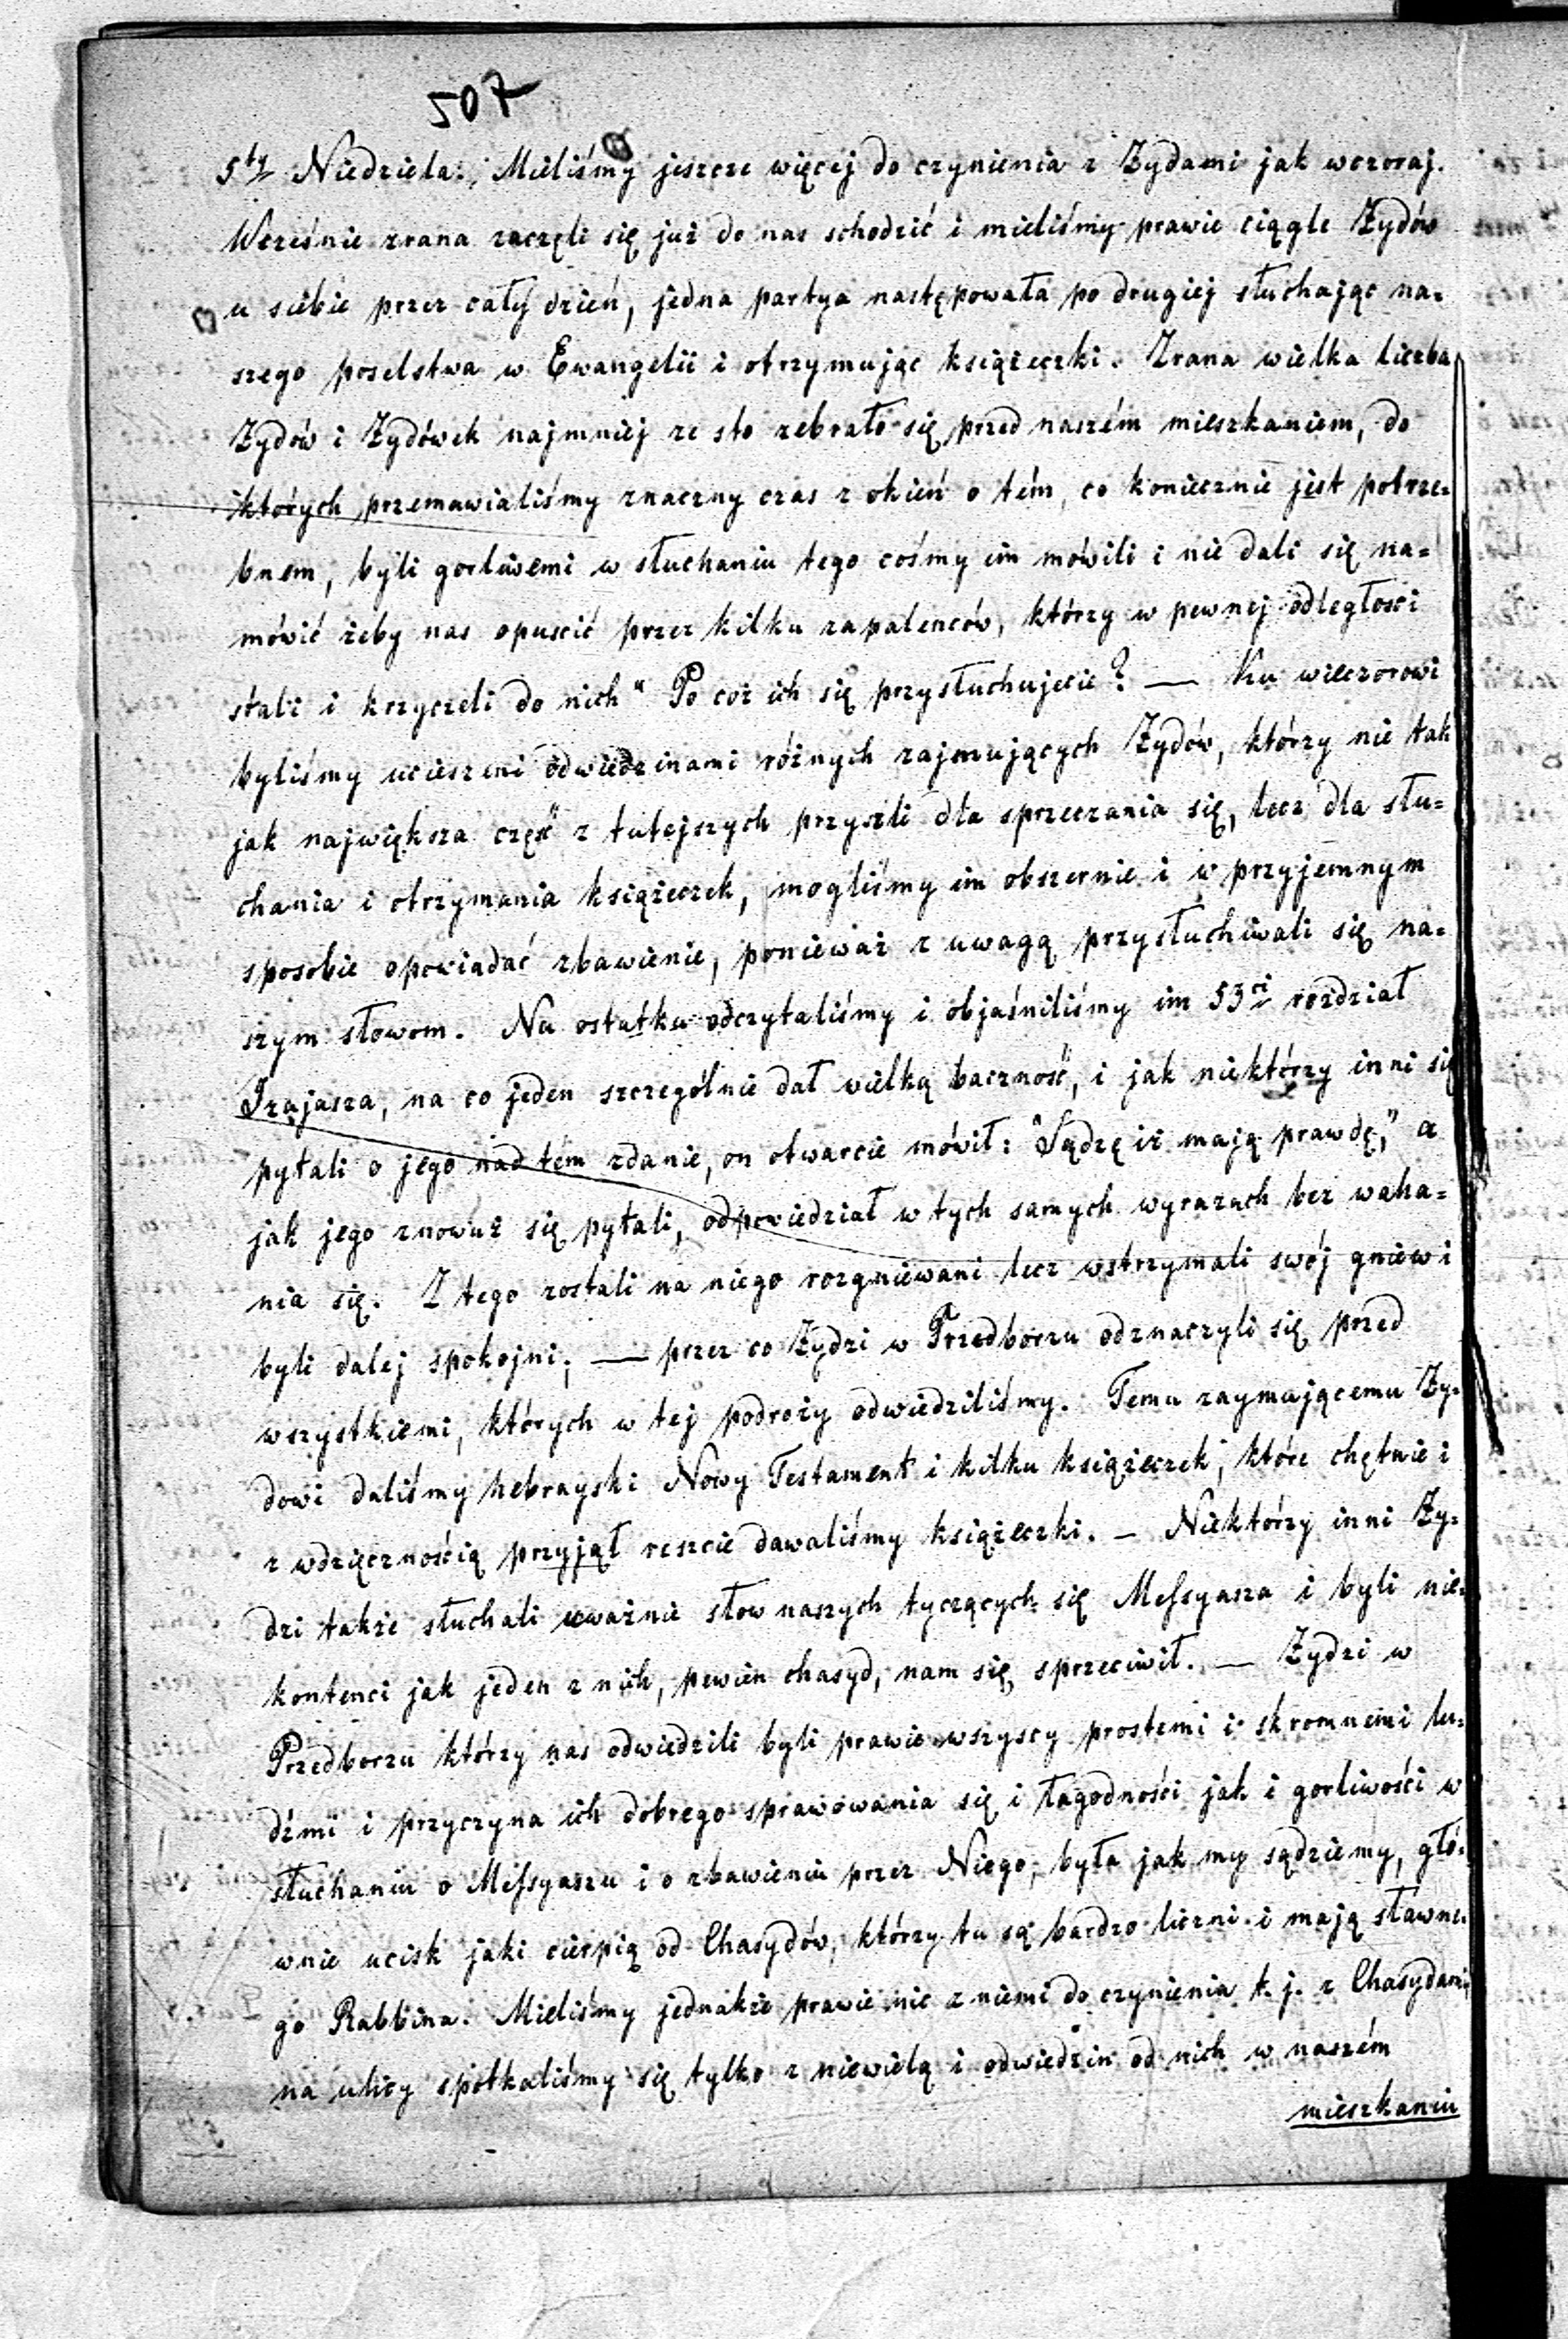 507
5ty Niedziela. Mieliśmy jeszcze więcej do czynienia z Żydami jak wczoraj.
Wcześnie zrana zaczęli się już do nas schodzić i mieliśmy prawie ciągle Żydów
u siebie przez cały dzień, jedna partya następowała po drugiej słuchając na=
szego poselstwa w Ewangelii i otrzymując książeczki. Zrana wielka liczba
Żydów i Żydówek najmniej ze sto zebrało się przed naszém mieszkaniem, do
których przemawialiśmy znaczny czas z okień o tém, co koniecznie jest potrze=
bnem, byli gorliwemi w słuchaniu tego cośmy im mówili i nie dali się na=
mówić żeby nas opuscić przez kilku zapaleńców, którzy w pewnej odległosci
stali i krzyczeli do nich "Po coż ich się przysłuchujecie? — Ku wieczorowi
byliśmy ucieszeni odwiedzinami różnych zajmujących Żydów, którzy nie tak
jak największa część z tutejszych przyszli dla sprzeczania się, lecz dla słu=
chania i otrzymania książeczek, mogliśmy im obszernie i w przyjemnym
sposobie opowiadać zbawienie, ponieważ z uwagą przysłuchiwali się na=
szym słowom. Na ostatku odczytaliśmy i objaśniliśmy im 53ci rozdział
Izajasza, na co jeden szczególnie dał wielką baczność, i jak niektórzy inni się
pytali o jego nad tém zdanie, on otwarcie mówił: "Sądzę iż mają prawdę," a
jak jego znowuż się pytali, odpowiedział w tych samych wyrazach bez waha=
nia się. Z tego zostali na niego rozgniewani lecz wstrzymali swój gniew i
byli dalej spokojni; — przez co Żydzi w Przedborzu odznaczyli się przed
wszystkiemi, których w tej podroży odwiedziliśmy. Temu zaymującemu Ży=
dowi daliśmy hebrayski Nowy Testament i kilku książeczek, które chętnie i
z wdzięcznością przyjął reszcie dawaliśmy książeczki. — Niektórzy inni Ży=
dzi także słuchali uważnie słow naszych tyczących się Messyasza i byli nie=
kontenci jak jeden z nich, pewien chasyd, nam się sprzeciwił. — Żydzi w
Przedborzu którzy nas odwiedzili byli prawie wszyscy prostemi i skromnemi lu=
dźmi i przyczyna ich dobrego sprawowania się i łagodności jak i gorliwości w
słuchaniu o Messyaszu i o zbawieniu przez Niego, była jak my sądziemy, głó=
wnie ucisk jaki cierpią od Chasydów, którzy tu są bardzo liczni i mają sławne=
go Rabbina. Mieliśmy jednakże prawie nic z niemi do czynienia t. j. z Chasydami
na ulicy spotkaliśmy się tylko z niewielą i odwiedzin od nich w naszém
mieszkaniu